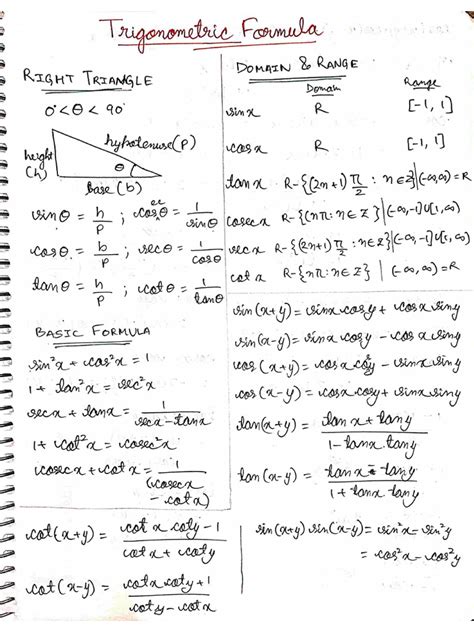 Trigonometric Formula
RIGHT TRIANGLE
0° < θ < 90°
height (h)
hypotenuse (P)
θ
base (b)
sinθ = h/P ; cosecθ = 1/sinθ
cosθ = b/P ; secθ = 1/cosθ
tanθ = h/P ; cotθ = 1/tanθ
BASIC FORMULA
sin²x + cos²x = 1
1 + tan²x = sec²x
secx + tanx = 1/(secx - tanx)
1 + cot²x = cosec²x
cosecx + cotx = 1/(cosecx - cotx)
DOMAIN & RANGE
Domain Range
sinx R [-1, 1]
cosx R [-1, 1]
tanx R-{(2n+1) π/2 : n∈Z} | (-∞,∞) = R
cosecx R-{nπ : n∈Z} | (-∞,-1]U[1,∞)
secx R-{(2n+1) π/2 : n∈Z} | (-∞,-1]U[1,∞)
cotx R-{nπ : n∈Z} | (-∞,∞) = R
sin(x+y) = sinx cosy + cosx siny
sin(x-y) = sinx cosy - cosx siny
cos(x+y) = cosx cosy - sinx siny
cos(x-y) = cosx cosy + sinx siny
tan(x+y) = (tanx + tany)/(1 - tanx. tany)
tan(x-y) = (tanx - tany)/(1 + tanx tany)
cot(x+y) = (cotx coty - 1)/(cotx + coty)
cot(x-y) = (cotx coty + 1)/(coty - cotx)
sin(x+y) sin(x-y) = sin²x - sin²y
= cos²x - cos²y